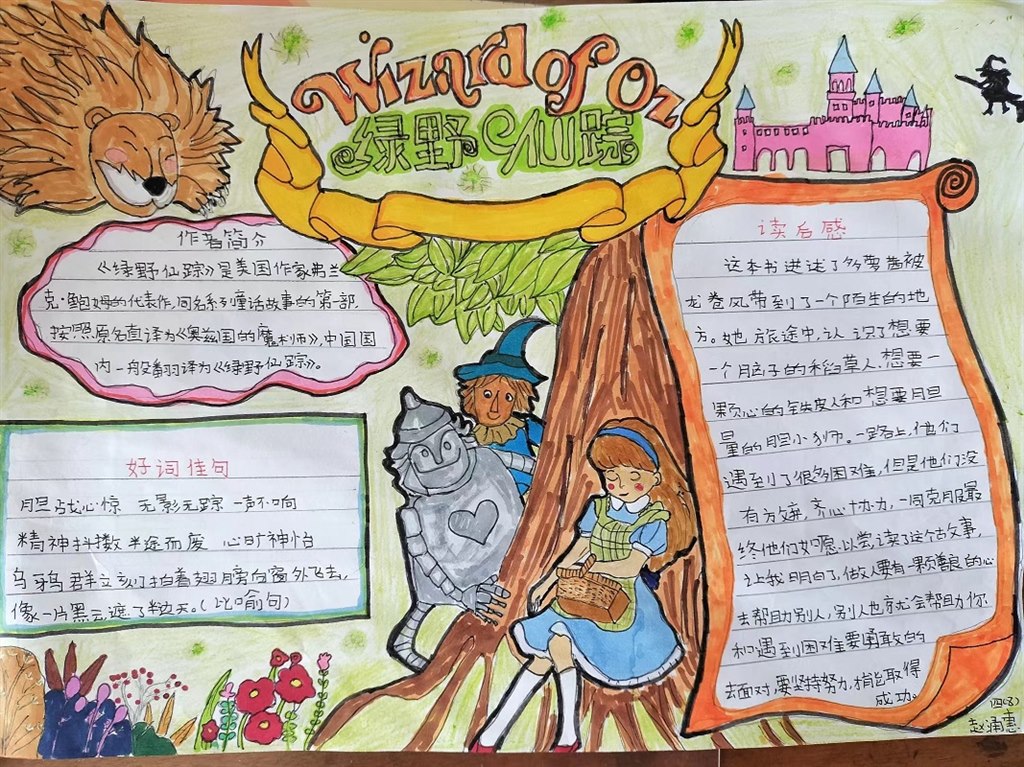 Wizard of Oz
绿野仙踪
作者简介
《绿野仙踪》是美国作家弗兰
克·鲍姆的代表作,同名系列童话故事的第一部,
按照原名直译为《奥兹国的魔术师》,中国国
内一般翻译为《绿野仙踪》。
好词佳句
胆战心惊 无影无踪 一声不响
精神抖擞 半途而废 心旷神怡
乌鸦群立刻拍着翅膀向窗外飞去,
像一片黑云,遮了半边天。(比喻句)
读后感
这本书讲述了多萝茜被
龙卷风带到了一个陌生的地
方。她旅途中,认识了想要
一个脑子的稻草人,想要一
颗心的铁皮人和想要胆
量的胆小狮。一路上,他们
遇到了很多困难,但是他们没
有放弃,齐心协力,一同克服最
终他们如愿以尝,读了这个故事,
让我明白了,做人要有一颗善良的心
去帮助别人,别人也就会帮助你
和遇到困难要勇敢的
去面对,要坚持努力,才能取得
成功。
四(8)
赵涌惠